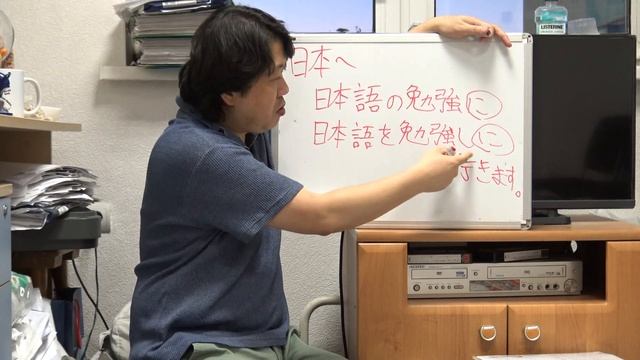 LISTERINE
日本へ
日本語の勉強に
日本語を勉強しに
行きます。